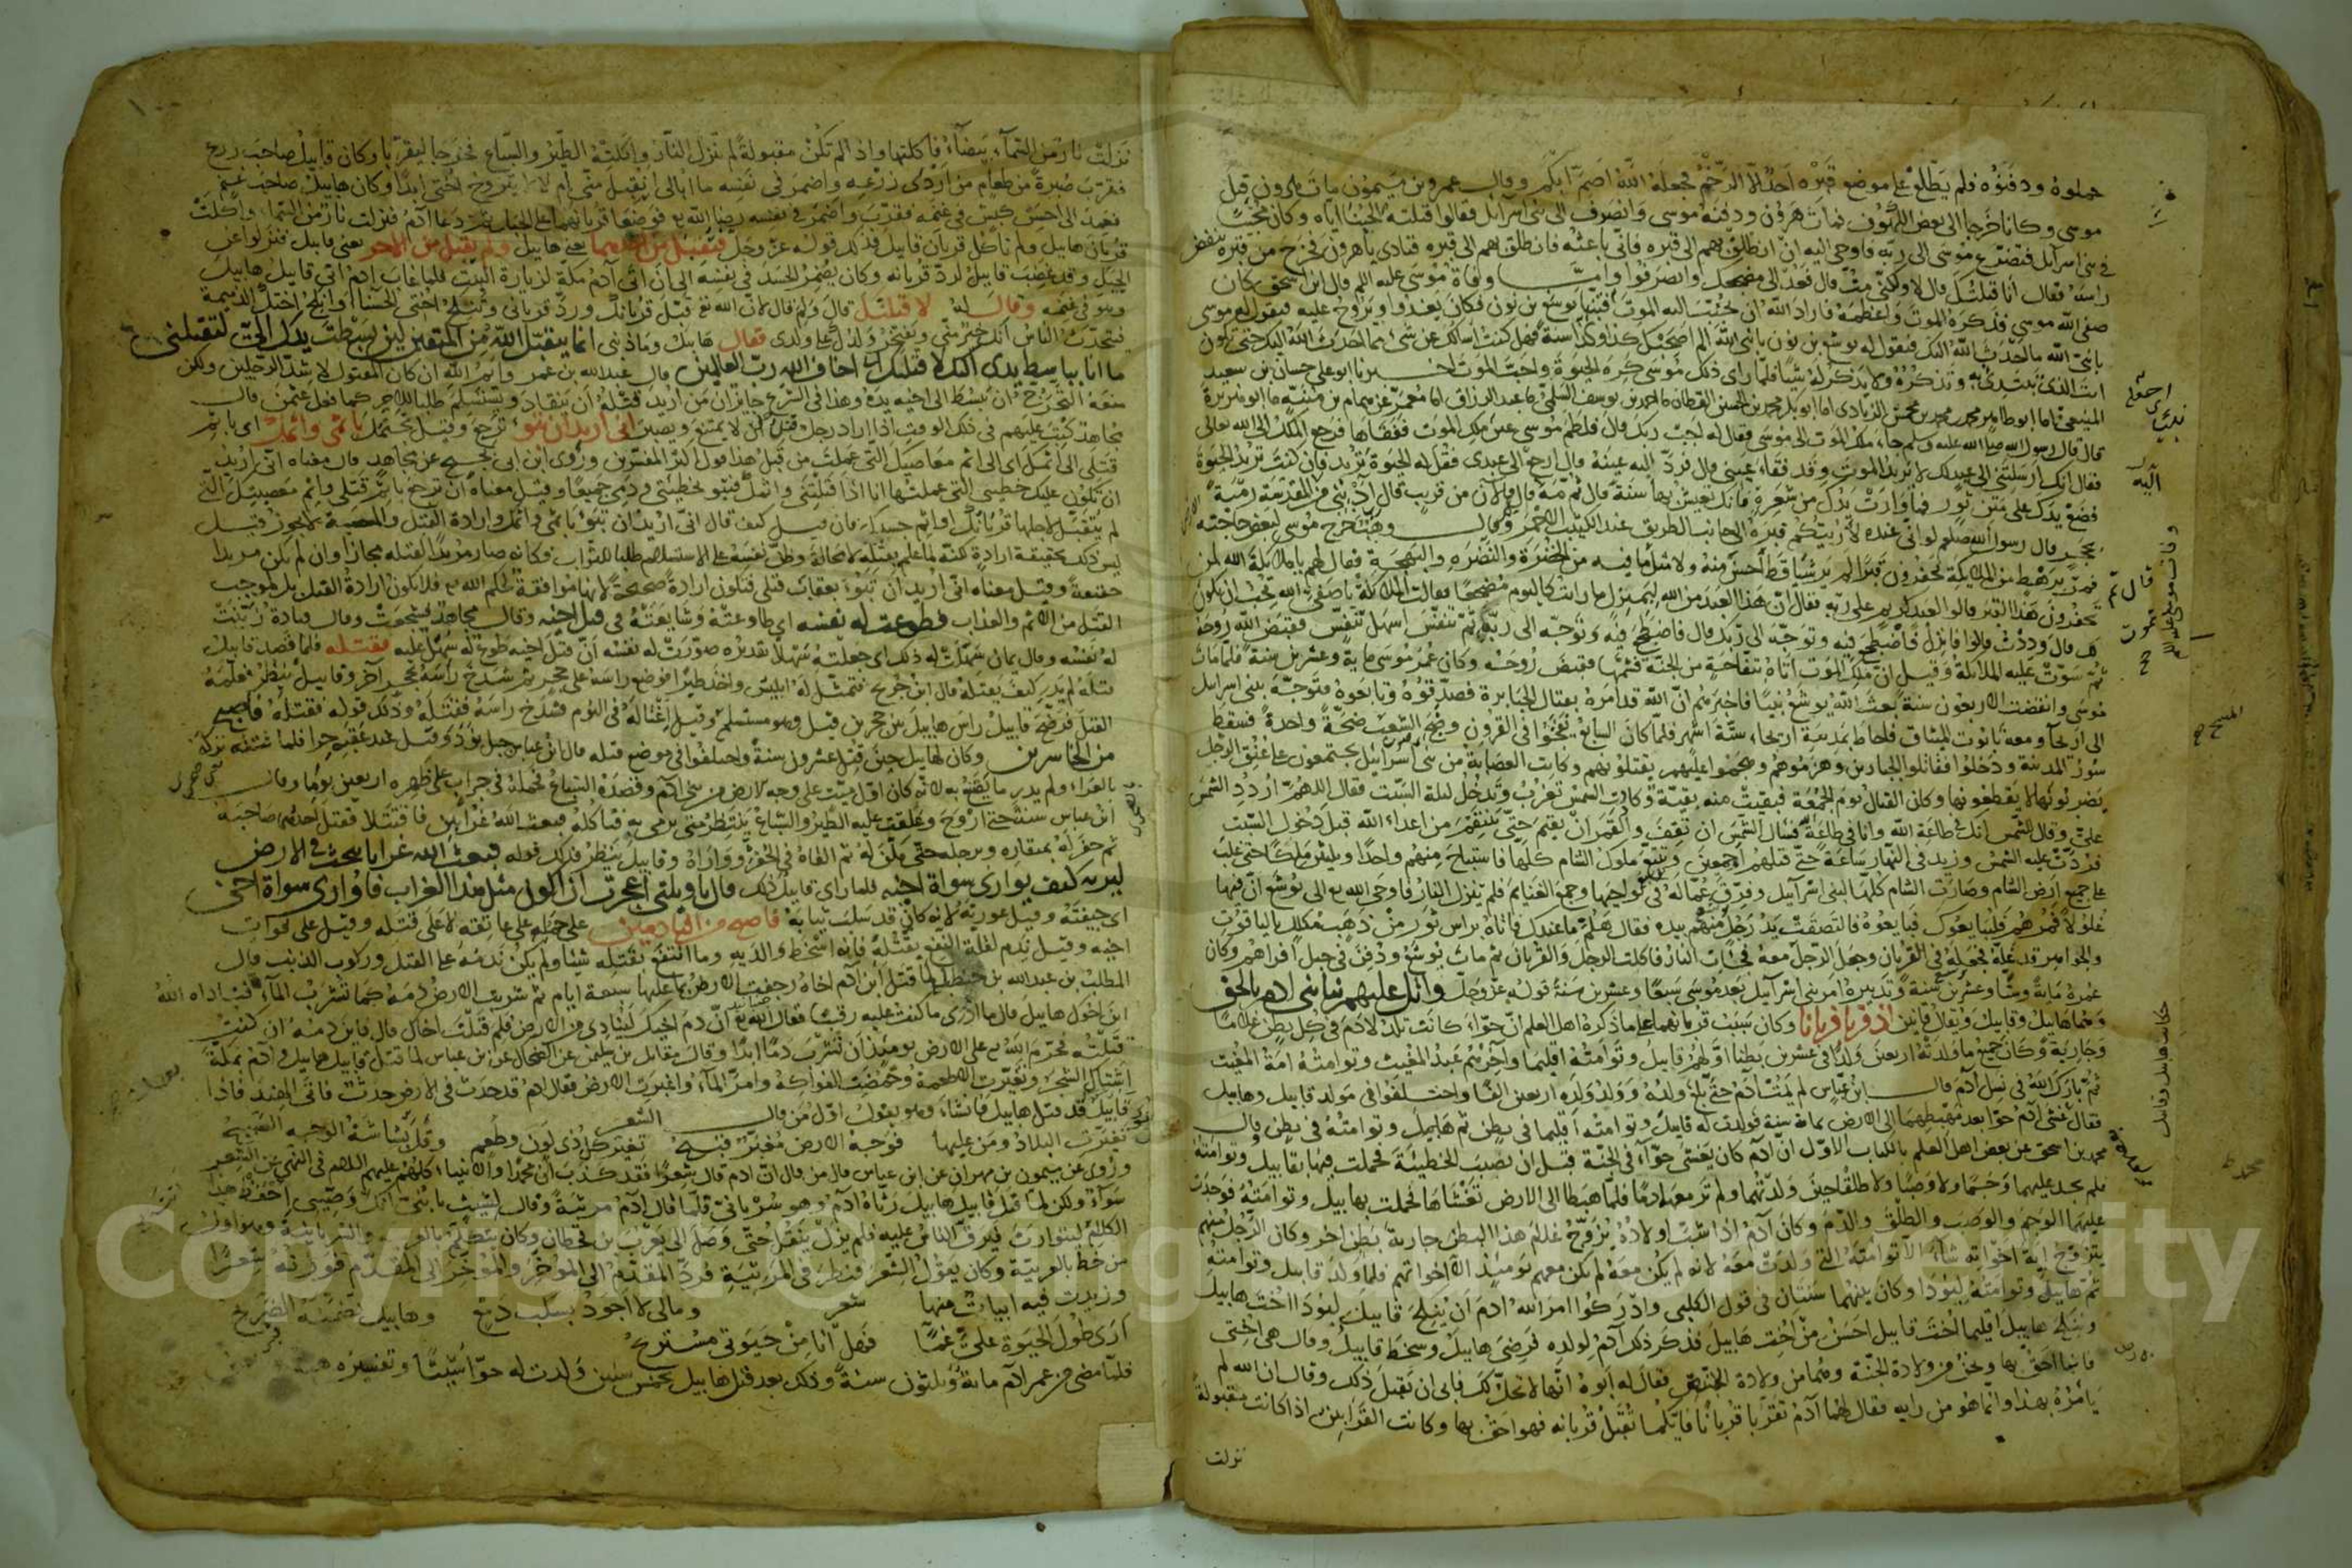 حملوه ودفنوه فلم يطلع على موضع قبره احد الا الرخم فجعله الله اصم ابكم وقال عمرو بن ميمون مات هرون قبل
موسى وكانا خرجا الى بعض الكهوف فمات هرون ودفنه موسى وانصرف الى بني اسرآئل فقالوا قتلته لحبنا اياه وكان محببا
في بني اسرآيل فتضرع موسى الى ربه فاوحى اليه ان انطلق بهم الى قبره فاني باعثه فانطلق بهم الى قبره فنادى يا هرون فخرج من قبره ينفض
راسه فقال انا قتلتك قال لا ولكني مت قال فعد الى مضجعك وانصرفوا واما وفاة موسى عليه السلم قال ابن اسحق كان
صفي الله موسى قد كره الموت واعظمه فاراد الله ان يحبب اليه الموت فنبا يوشع بن نون فكان يغدوا ويروح عليه فيقول له موسى
يا نبي الله ما احدث الله اليك فيقول له يوشع بن نون يا نبي الله الم اصحبك كذا وكذا سنة فهل كنت اسالك عن شئ مما احدث الله اليك حتى تكون
انت الذي تبتدئ به وتذكره ولا يذكر له شيئا فلما راى ذلك موسى كره الحيوة واحب الموت اخبرنا ابو علي حسان بن سعيد
المنيعي انا ابو طاهر محمد بن محمد بن محمش الزيادي انا ابو بكر محمد بن الحسين القطان نا احمد بن يوسف السلمي نا عبد الرزاق انا معمر عن همام بن منبه نا ابو هريرة
قال قال رسول الله صلى الله عليه وسلم جاء ملك الموت الى موسى فقال له اجب ربك قال فلطم موسى عين ملك الموت ففقاها فرجع الملك الى الله تعالى
فقال انك ارسلتني الى عبد لك لا يريد الموت وقد فقاء عيني قال فرد الله اليه عينه وقال ارجع الى عبدي فقل له الحيوة تريد فان كنت تريد الحيوة
فضع يدك على متن ثور فما وارت يدك من شعرة فانك تعيش بها سنة قال ثم مه قال ثم تموت قال فالآن من قريب قال رب ادنني من الارض المقدسة رمية
بحجر قال رسول الله صلعم لو اني عنده لأريتكم قبره الى جانب الطريق عند الكثيب الاحمر وقال وهب خرج موسى لبعض حاجته
فمر برهط من الملائكة يحفرون قبرا لم ير شيئا قط احسن منه ولا مثل ما فيه من الخضرة والنضرة والبهجة فقال لهم يا ملائكة الله لمن
تحفرون هذا القبر قالوا لعبد كريم على ربه فقال ان هذا العبد من الله لبمنزل ما رايت كاليوم مضجعا فقالت الملائكة يا صفي الله تحب ان يكون
لك قال وددت قالوا فانزل فاضطجع فيه وتوجه الى ربك قال فاضطجع فيه وتوجه الى ربه ثم تنفس اسهل تنفس فقبض الله روحه
ثم سوت عليه الملائكة وقيل ان ملك الموت اتاه بتفاحة من الجنة فشمها فقبض روحه وكان عمر موسى ماية وعشرين سنة فلما مات
موسى وانقضت الاربعون سنة بعث الله يوشع نبيا فاخبرهم ان الله قد امره بقتال الجبابرة فصدقوه وتابعوه فتوجه ببني اسرايل
الى اريحا ومعه تابوت الميثاق فاحاط بمدينة اريحا ستة اشهر فلما كان السابع نفخوا في القرون وضج الشعب ضجة واحدة فسقط
سور المدينة ودخلوا فقاتلوا الجبارين وهزموهم وهجموا عليهم يقتلونهم وكانت العصابة من بني اسرائيل يجتمعون على عنق الرجل
يضربونها لا يقطعونها وكان القتال يوم الجمعة فبقيت منه بقية وكادت الشمس تغرب وتدخل ليلة السبت فقال اللهم اردد الشمس
علي وقال للشمس انك في طاعة الله وانا في طاعة الله فسال الشمس ان تقف والقمر ان يقيم حتى ينتقم من اعداء الله قبل دخول السبت
فردت عليه الشمس وزيد في النهار ساعة حتى قتلهم اجمعين وتتبع ملوك الشام كلها فاستباح منهم واحدا وثلثين ملكا حتى غلب
على جميع ارض الشام وصارت الشام كلها لبني اسرآئيل وفرق عماله في نواحيها وجمع الغنايم فلم تنزل النار فاوحى الله تع الى يوشع ان فيها
غلولا فمرهم فليبايعوك فبايعوه فالتصقت يد رجل منهم بيده فقال هلم ما عندك فاتاه براس ثور من ذهب مكلل بالياقوت
والجواهر قد غله فجعله في القربان وجعل الرجل معه فجات النار فاكلت الرجل والقربان ثم مات يوشع ودفن في جبل افراهم وكان
عمره مائة وستا وعشرين سنة وتدبيره امر بني اسرآئيل بعد موسى سبعا وعشرين سنة قوله عز وجل واتل عليهم نبا ابني ادم بالحق
وهما هابيل وقابيل ويقال قابين اذ قربا قربانا وكان سبب قربانهما على ما ذكره اهل العلم ان حواء كانت تلد لادم في كل بطن غلاما
وجارية وكان جميع ما ولدته اربعين ولدا في عشرين بطنا اولهم قابيل وتوامته اقليما وآخرهم عبد المغيث وتوامته امة المغيث
ثم بارك الله في نسل آدم قال ابن عباس لم يمت آدم حتى بلغ ولده وولد ولده اربعين الفا واختلفوا في مولد قابيل وهابيل
فقال غشي آدم حوا بعد مهبطهما الى الارض بمائة سنة فولدت له قابيل وتوامته اقليما في بطن ثم هابيل وتوامته في بطن وقال
محمد بن اسحق عن بعض اهل العلم بالكتاب الاول ان آدم كان يغشى حوآء في الجنة قبل ان يصيب الخطيئة فحملت فيها بقابيل وتوامته
فلم تجد عليهما وحما ولا وصبا ولا طلقا حين ولدتهما ولم تر معهما دما فلما هبطا الى الارض تغشاها فحملت بهابيل وتوامته فوجدت
عليهما الوحم والوصب والطلق والدم وكان آدم اذا شب اولاده يزوج غلام هذا البطن جارية بطن اخر وكان الرجل منهم
يتزوج اية اخواته شاء الا توامته التي ولدت معه لانه لم يكن معه لم يكن معهم يومئذ الا اخواتهم فلما ولد قابيل وتوامته
ثم هابيل وتوامته ليوذا وكان بينهما سنتان في قول الكلبي وادركوا امر الله ادم ان ينكح قابيل ليوذا اخت هابيل
وينكح هابيل اقليما اخت قابيل احسن من اخت هابيل فذكر ذلك آدم لولده فرضي هابيل وسخط قابيل وقال هي اختي
فانا احق بها ونحن من ولادة الجنة وهما من ولادة الارض فقال له ابوه انها لا تحل لك فابى ان يقبل ذلك وقال ان الله لم
يامره بهذا وانما هو من رايه فقال لهما آدم تقربا قربانا فايكما تقبل قربانه فهو احق بها وكانت القرابين اذا كانت مقبولة
نزلت
نزلت نار من السمآء بيضآء فاكلتها واذا لم تكن مقبولة لم تنزل النار واكلته الطير والسباع فخرجا ليقربا وكان قابيل صاحب زرع
فقرب صبرة من طعام من اردى زرعه واضمر في نفسه ما ابالي ايقبل مني ام لا لا يتزوج اختي ابدا وكان هابيل صاحب غنم
فعمد الى احسن كبش في غنمه فقرب واضمر في نفسه رضا الله تع فوضعا قربانهما على الجبل ثم دعا آدم فنزلت نار من السماء واكلت
قربان هابيل ولم تاكل قربان قابيل فذلك قوله عز وجل فتقبل من احدهما يعني هابيل ولم يتقبل من الاخر يعني قابيل فنزلوا عن
الجبل وقد غضب قابيل لرد قربانه وكان يضمر الحسد في نفسه الى ان اتى آدم مكة لزيارة البيت فلما غاب ادم اتى قابيل هابيل
وهو في غنمه وقال له لاقتلنك قال ولم قال لان الله تع قبل قربانك ورد قرباني وتنكح اختي الحسناء وانكح اختك الذميمة
فيتحدث الناس انك خير مني ويفتخر ولدك على ولدي فقال هابيل وما ذنبي انما يتقبل الله من المتقين لئن بسطت يدك الي لتقتلني
ما انا بباسط يدي اليك لاقتلك اني اخاف الله رب العالمين قال عبد الله بن عمر وايم الله ان كان المقتول لاشد الرجلين ولكن
منعه التحرج ان يبسط الى اخيه يده وهذا في الشرع جائز ان من اريد قتله ان ينقاد ويستسلم طلبا للاجر كما فعل عثمن قال
مجاهد كتب عليهم في ذلك الوقت اذا اراد رجل قتل رجل ان لا يمتنع ويصبر اني اريد ان تبوء ترجع وقيل تحتمل باثمي واثمك اي باثم
قتلي الى اثمك اي الى اثم معاصيك التي عملت من قبل هذا قول اكثر المفسرين وروى ابن ابي نجيح عن مجاهد قال معناه اني اريد
ان تكون عليك خطيئتي التي عملتها انا اذا قتلتني واثمك فتبوء بخطيئتي ودمي جميعا وقيل معناه ان ترجع باثم قتلي واثم معصيتك التي
لم يتقبل لاجلها قربانك او اثم حسدك فان قيل كيف قال اني اريد ان تبوء باثمي واثمك وارادة القتل والمعصية لا يجوز قيل
ليس ذلك بحقيقة ارادة لكنه لما علم بقتله لا محالة وطن نفسه على الاستسلام طلبا للثواب فكانه صار مريدا لقتله مجازا وان لم يكن مريدا
حقيقة وقيل معناه اني اريد ان تبوء بعقاب قتلي فتكون ارادة صحيحة لانها موافقة لحكم الله تع فلا يكون ارادة القتل بل لموجب
القتل من الاثم والعذاب فطوعت له نفسه اي طاوعته وشايعته في قتل اخيه وقال مجاهد شجعت وقال قتادة زينت
له نفسه وقال يمان سهلت له ذلك اي جعلته سهلا تقديره صورت له نفسه ان قتل اخيه طوع له سهل عليه فقتله فلما قصد قابيل
قتله لم يدر كيف يقتله قال ابن جريج فتمثل له ابليس واخذ طيرا فوضع راسه على حجر ثم شدخ راسه بحجر آخر وقابيل ينظر فعلمه
القتل فرضخ قابيل راس هابيل بين حجرين قيل وهو مستسلم وقيل اغتاله في النوم فشدخ راسه فقتله وذلك قوله فقتله فاصبح
من الخاسرين وكان لهابيل حين قتل عشرون سنة واختلفوا في موضع قتله قال ابن عباس جبل نوذ وقيل عند عقبة حرا فلما قتله تركه
بالعراء ولم يدر ما يصنع به لانه كان اول ميت على وجه الارض من بني آدم وقصده السباع فحمله في جراب على ظهره اربعين يوما وقال
ابن عباس سنة حتى اروح وعكفت عليه الطير والسباع ينتظر متى يرمي به فتاكله فبعث الله غرابين فاقتتلا فقتل احدهما صاحبه
ثم حفر له بمنقاره وبرجله حتى مكن له ثم القاه في الحفرة وواراه وقابيل ينظر فذلك قوله فبعث الله غرابا يبحث في الارض
ليريه كيف يواري سواة اخيه فلما راى قابيل ذلك قال يا ويلتى اعجزت ان اكون مثل هذا الغراب فاواري سواة اخي
اي جيفته وقيل عورته لانه كان قد سلب ثيابه فاصبح من النادمين على حمله على عاتقه لا على قتله وقيل على فوات
اخيه وقيل ندم لقلة النفع بقتله فانه اسخط والديه وما انتفع بقتله شيئا ولم يكن ندمه على القتل وركوب الذنب قال
المطلب بن عبد الله بن حنطب لما قتل ابن آدم اخاه رجفت الارض بما عليها سبعة ايام ثم شربت الارض دمه كما تشرب المآء فناداه الله
اين اخوك هابيل قال ما ادري ما كنت عليه رقيبا فقال الله تع ان دم اخيك لينادي من الارض فلم قتلت اخاك قال فاين دمه ان كنت
قتلته فحرم الله تع على الارض يومئذ ان تشرب دما ابدا وقال مقاتل بن سليمن عن الضحاك عن ابن عباس لما قتل قابيل هابيل وآدم بمكة
اشتاك الشجر وتغيرت الاطعمة وحمضت الفواكه وامر المآء واغبرت الارض فقال ادم قد حدث في الارض حدث فاتى الهند فاذا
قابيل قد قتل هابيل فانشاء وهو يقول اول من قال الشعر
تغيرت البلاد ومن عليها فوجه الارض مغبر قبيح تغير كل ذي لون وطعم وقل بشاشة الوجه الصبيح
وروي عن ميمون بن مهران عن ابن عباس قال من قال ان ادم قال شعرا فقد كذب ان محمدا والانبياء كلهم عليهم السلام في النهي عن الشعر
سواء ولكن لما قتل قابيل هابيل رثاه آدم وهو سرياني فلما قال آدم مرثية وقال لشيث يا بني انك وصيي احفظ هذا
الكلام ليتوارث فيرق الناس عليه فلم يزل ينقل حتى وصل الى يعرب بن قحطان وكان يتكلم بالعربية والسريانية وهو اول
من خط بالعربية وكان يقول الشعر فنظر في المرثية فرد المقدم الى المؤخر والمؤخر الى المقدم فوزنه شعرا
وزيدت فيه ابيات منها شعر ومالي لا اجود بسكب دمع وهابيل تضمنه الضريح
ارى طول الحيوة علي غما فهل انا من حيوتي مستريح
فلما مضى من عمر آدم مائة وثلثون سنة وذلك بعد قتل هابيل بخمس سنين ولدت له حوا شيثا وتفسيره هبة